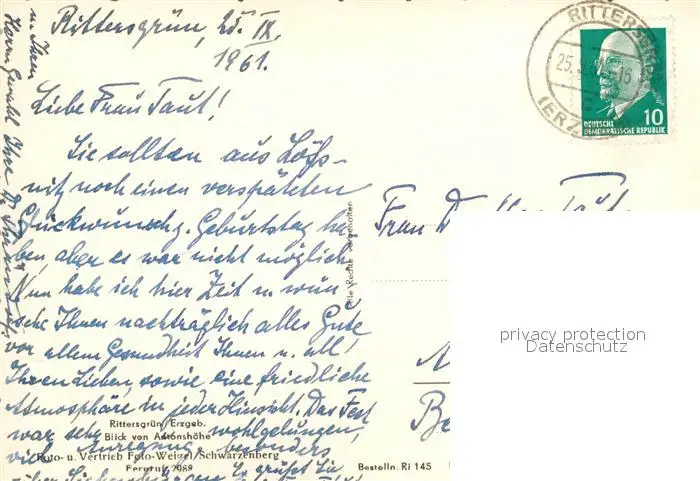 Rittersgrün, 25. IX.
1961.
Liebe Frau Taut!
Sie sollten aus Löß-
nitz noch einen verspäteten
Glückwunsch z. Geburtstag ha-
ben, aber es war nicht möglich.
Nun habe ich hier Zeit u. wün-
sche Ihnen nachträglich alles Gute
vor allem Gesundheit Ihnen u. all
Ihren Lieben, sowie eine friedliche
Atmosphäre in jeder Hinsicht. Das Fest
war sehr wohlgelungen,
viel Anregung, besonders
grüßt Sie
u. Ihren
Herrn Gemahl Ihre
Rittersgrün/Erzgeb.
Blick von Antonshöhe
Foto- u. Vertrieb Foto-Weigel/Schwarzenberg
Fernruf 2089
Bestelln. Ri 145
Alle Rechte vorbehalten
RITTERSGRÜN
25.9.61-16
(ERZ
10
DEUTSCHE
DEMOKRATISCHE REPUBLIK
Frau Taut
privacy protection
Datenschutz